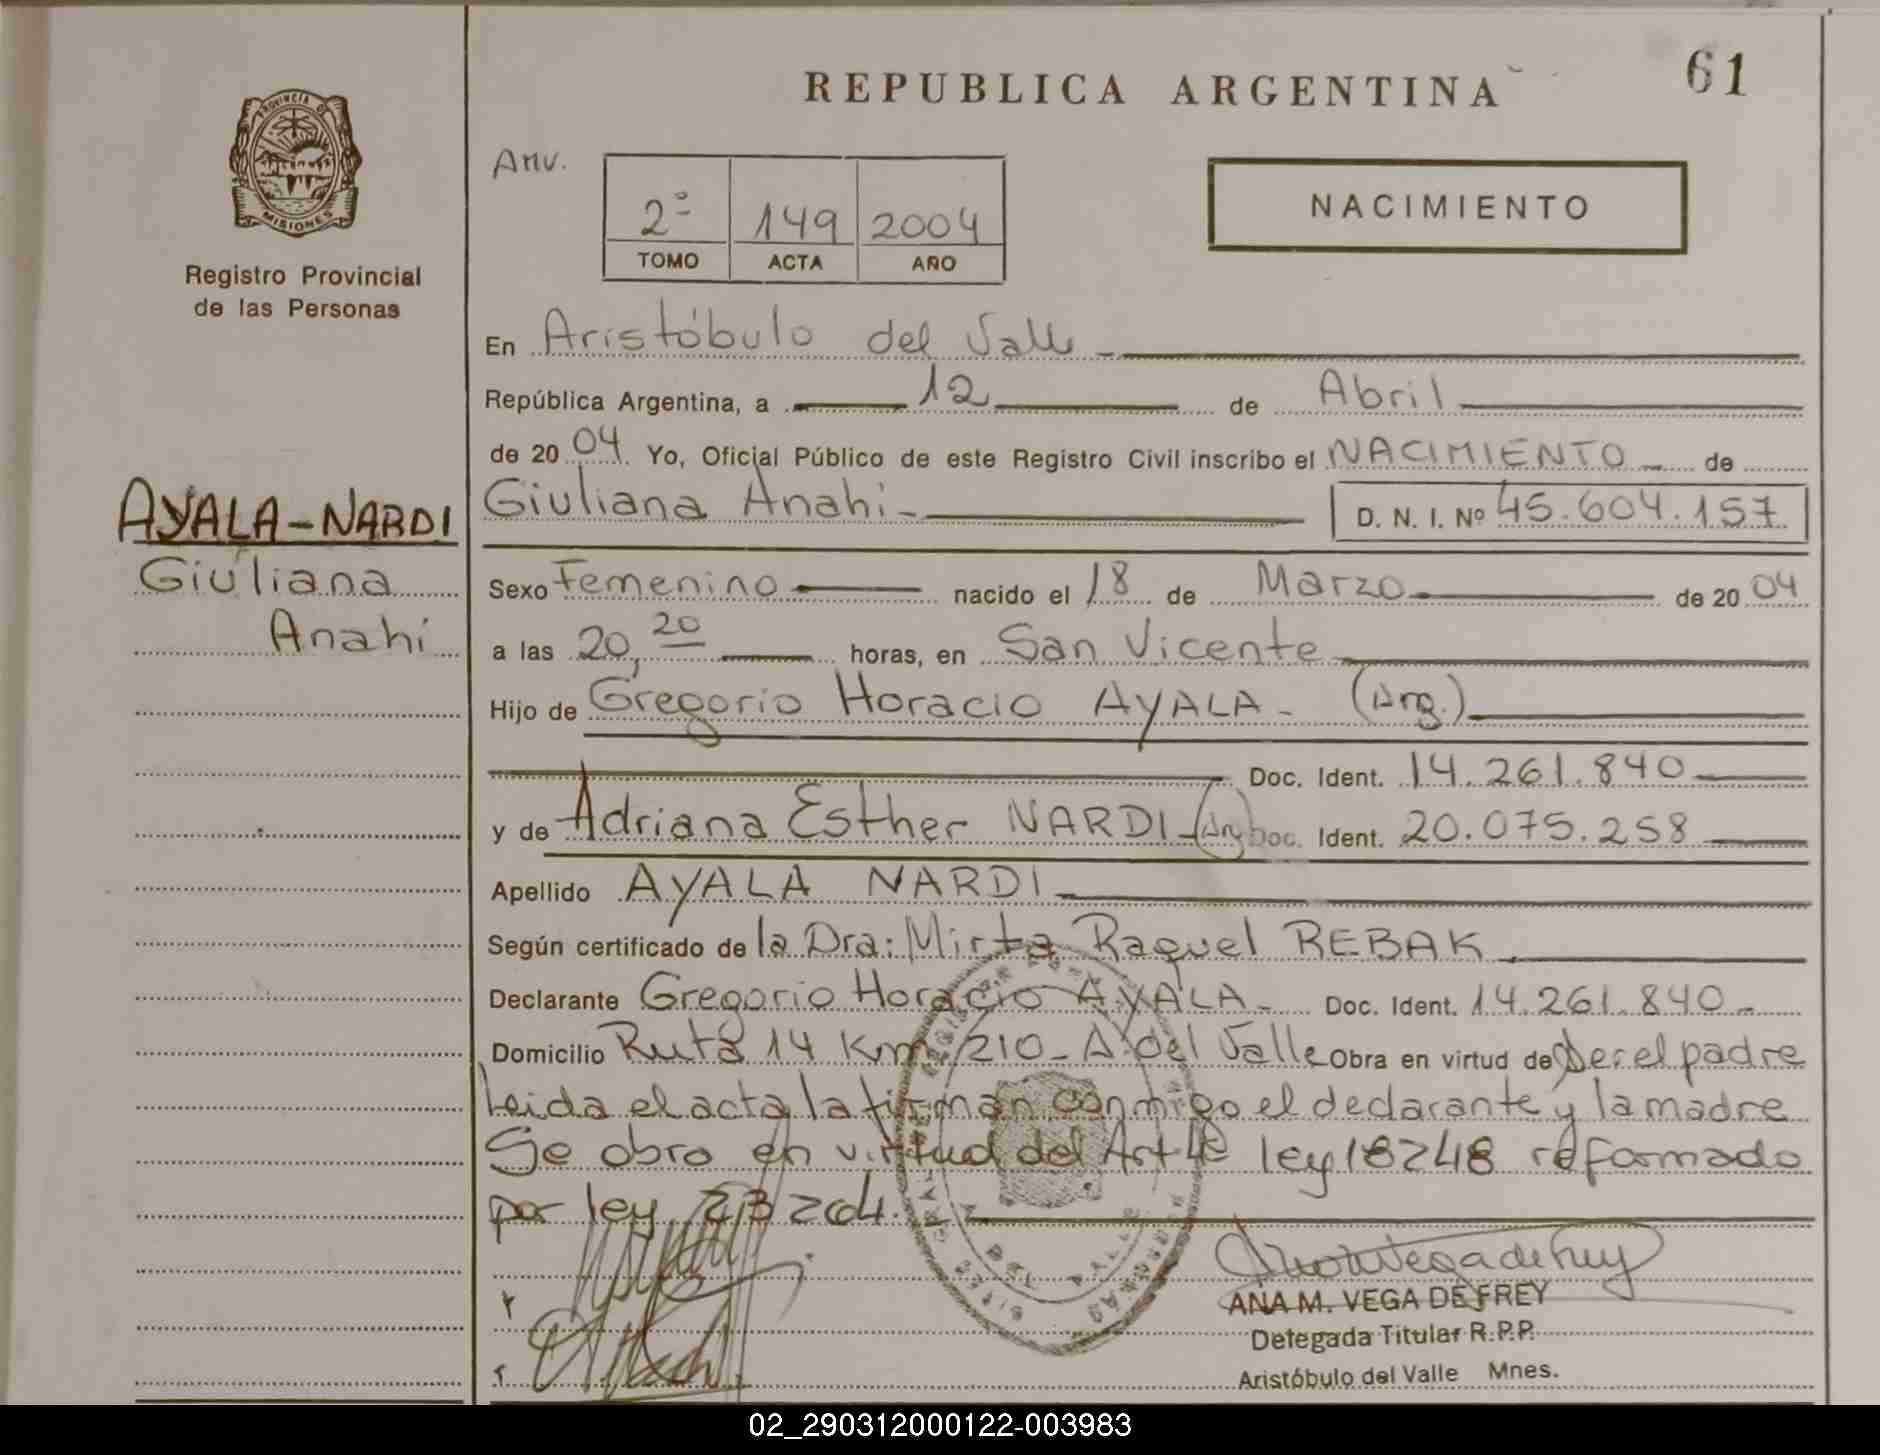 REPUBLICA ARGENTINA
61
PROVINCIA DE
MISIONES
Registro Provincial
de las Personas
Anv.
2º 149 2004
TOMO ACTA AÑO
NACIMIENTO
En Aristóbulo del Valle
República Argentina, a 12 de Abril
de 2004. Yo, Oficial Público de este Registro Civil inscribo el NACIMIENTO de
AYALA-NARDI
Giuliana
Anahi
Giuliana Anahi D. N. I. Nº 45.604.157
Sexo Femenino nacido el 18 de Marzo de 2004
a las 20,20 horas, en San Vicente
Hijo de Gregorio Horacio AYALA - (Arg.)
Doc. Ident. 14.261.840
y de Adriana Esther NARDI - (Arg) Doc. Ident. 20.075.258
Apellido AYALA NARDI
Según certificado de la Dra: Mirta Raquel REBAK
Declarante Gregorio Horacio AYALA - Doc. Ident. 14.261.840 -
Domicilio Ruta 14 Km 1210 - A. del Valle Obra en virtud de ser el padre
Leida el acta la firman conmigo el declarante y la madre
Se obro en virtud del Art 4º ley 18248 reformado
por ley 23264.
ANA M. VEGA DE FREY
Delegada Titular R.P.P.
Aristóbulo del Valle Mnes.
02_290312000122-003983